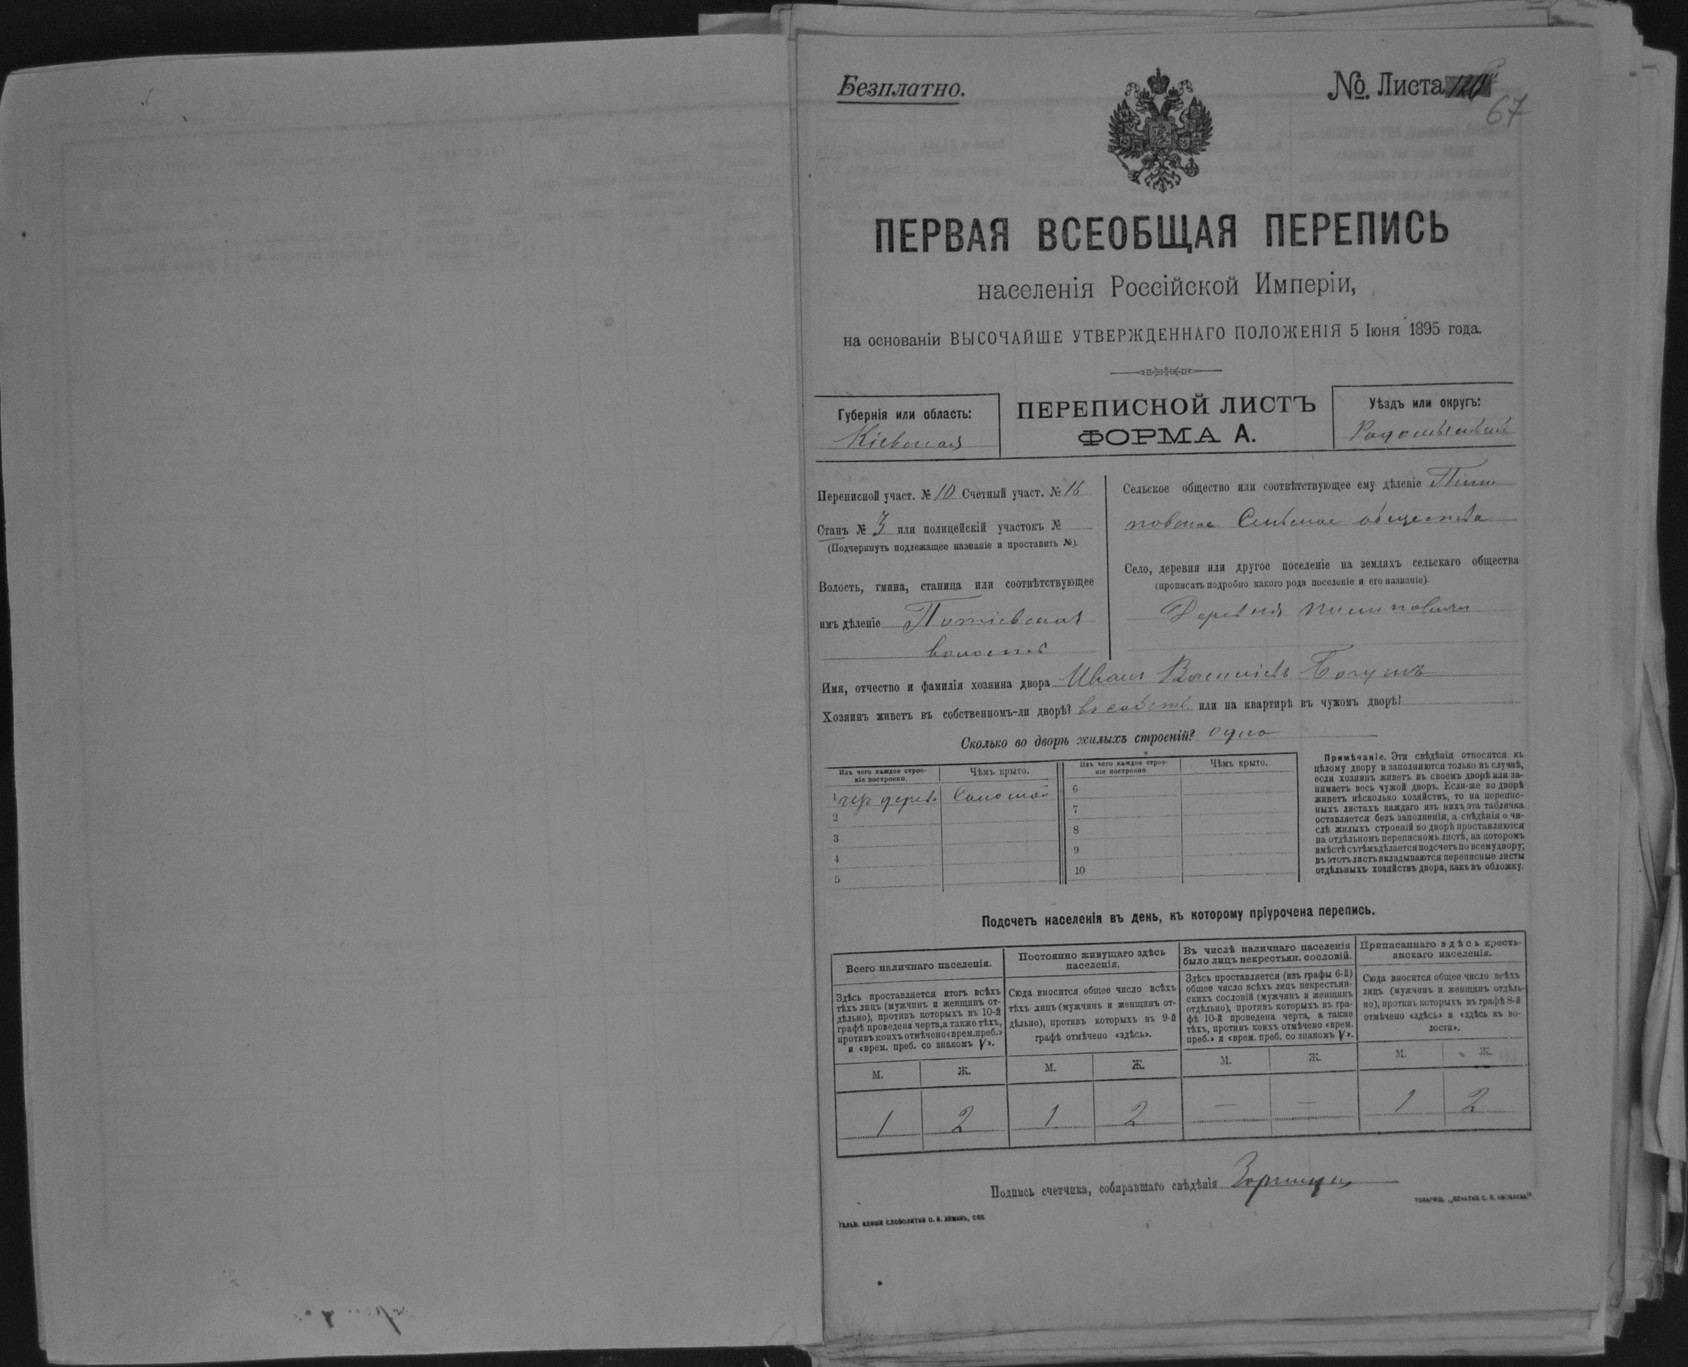 Безплатно.
№ Листа 120
67
ПЕРВАЯ ВСЕОБЩАЯ ПЕРЕПИСЬ
населенія Россійской Имперіи,
на основаніи ВЫСОЧАЙШЕ УТВЕРЖДЕННАГО ПОЛОЖЕНІЯ 5 Іюня 1895 года.
Губернія или область:
Кіевская
ПЕРЕПИСНОЙ ЛИСТЪ
ФОРМА А.
Уѣздъ или округъ:
Радомысльскій
Переписной участ. № 10 Счетный участ. № 16
Станъ № 3 или полицейскій участокъ №
(Подчеркнуть подлежащее названіе и проставить №).
Волость, гмина, станица или соотвѣтствующее
имъ дѣленіе Потіевская
волость
Сельское общество или соотвѣтствующее ему дѣленіе
Сельское общество
Село, деревня или другое поселеніе на земляхъ сельскаго общества
(прописать подробно какого рода поселеніе и его названіе).
Деревня
Имя, отчество и фамилія хозяина двора Иванъ
Хозяинъ живетъ въ собственномъ-ли дворѣ? въ собств. или на квартирѣ въ чужомъ дворѣ?
Сколько во дворѣ жилыхъ строеній? одно
Изъ чего каждое строе-
ніе построено.
Чѣмъ крыто.
Изъ чего каждое строе-
ніе построено.
Чѣмъ крыто.
1 изъ дерева Соломой
2
3
4
5
6
7
8
9
10
Примѣчаніе. Эти свѣдѣнія относятся къ
цѣлому двору и заполняются только въ случаѣ,
если хозяинъ живетъ въ своемъ дворѣ или за-
нимаетъ весь чужой дворъ. Если-же во дворѣ
живетъ нѣсколько хозяйствъ, то на перепис-
ныхъ листахъ каждаго изъ нихъ эта табличка
оставляется безъ заполненія, а свѣдѣнія о чи-
слѣ жилыхъ строеній во дворѣ проставляются
на отдѣльномъ переписномъ листѣ, на которомъ
вмѣстѣ съ тѣмъ дѣлается подсчетъ по всему двору;
въ этотъ листъ вкладываются переписные листы
отдѣльныхъ хозяйствъ двора, какъ въ обложку.
Подсчетъ населенія въ день, къ которому пріурочена перепись.
Всего наличнаго населенія.
Здѣсь проставляется итогъ всѣхъ
тѣхъ лицъ (мужчинъ и женщинъ от-
дѣльно), противъ которыхъ въ 10-й
графѣ проведена черта, а также тѣхъ,
противъ коихъ отмѣчено «врем. преб.»
и «врем. преб. со знакомъ V».
М. Ж.
1 2
Постоянно живущаго здѣсь
населенія.
Сюда вносится общее число всѣхъ
тѣхъ лицъ (мужчинъ и женщинъ от-
дѣльно), противъ которыхъ въ 9-й
графѣ отмѣчено «здѣсь».
М. Ж.
1 2
Въ числѣ наличнаго населенія
было лицъ некрестьян. сословій.
Здѣсь проставляется (изъ графы 6-й)
общее число всѣхъ лицъ некрестьян-
скихъ сословій (мужчинъ и женщинъ
отдѣльно), противъ которыхъ въ гра-
фѣ 10-й проведена черта, а также
тѣхъ, противъ коихъ отмѣчено «врем.
преб.» и «врем. преб. со знакомъ V».
М. Ж.
— —
Приписаннаго здѣсь кресть-
янскаго населенія.
Сюда вносится общее число всѣхъ
лицъ (мужчинъ и женщинъ отдѣль-
но), противъ которыхъ въ графѣ 8-й
отмѣчено «здѣсь» и «здѣсь къ во-
лости».
М. Ж.
1 2
Подпись счетчика, собиравшаго свѣдѣнія